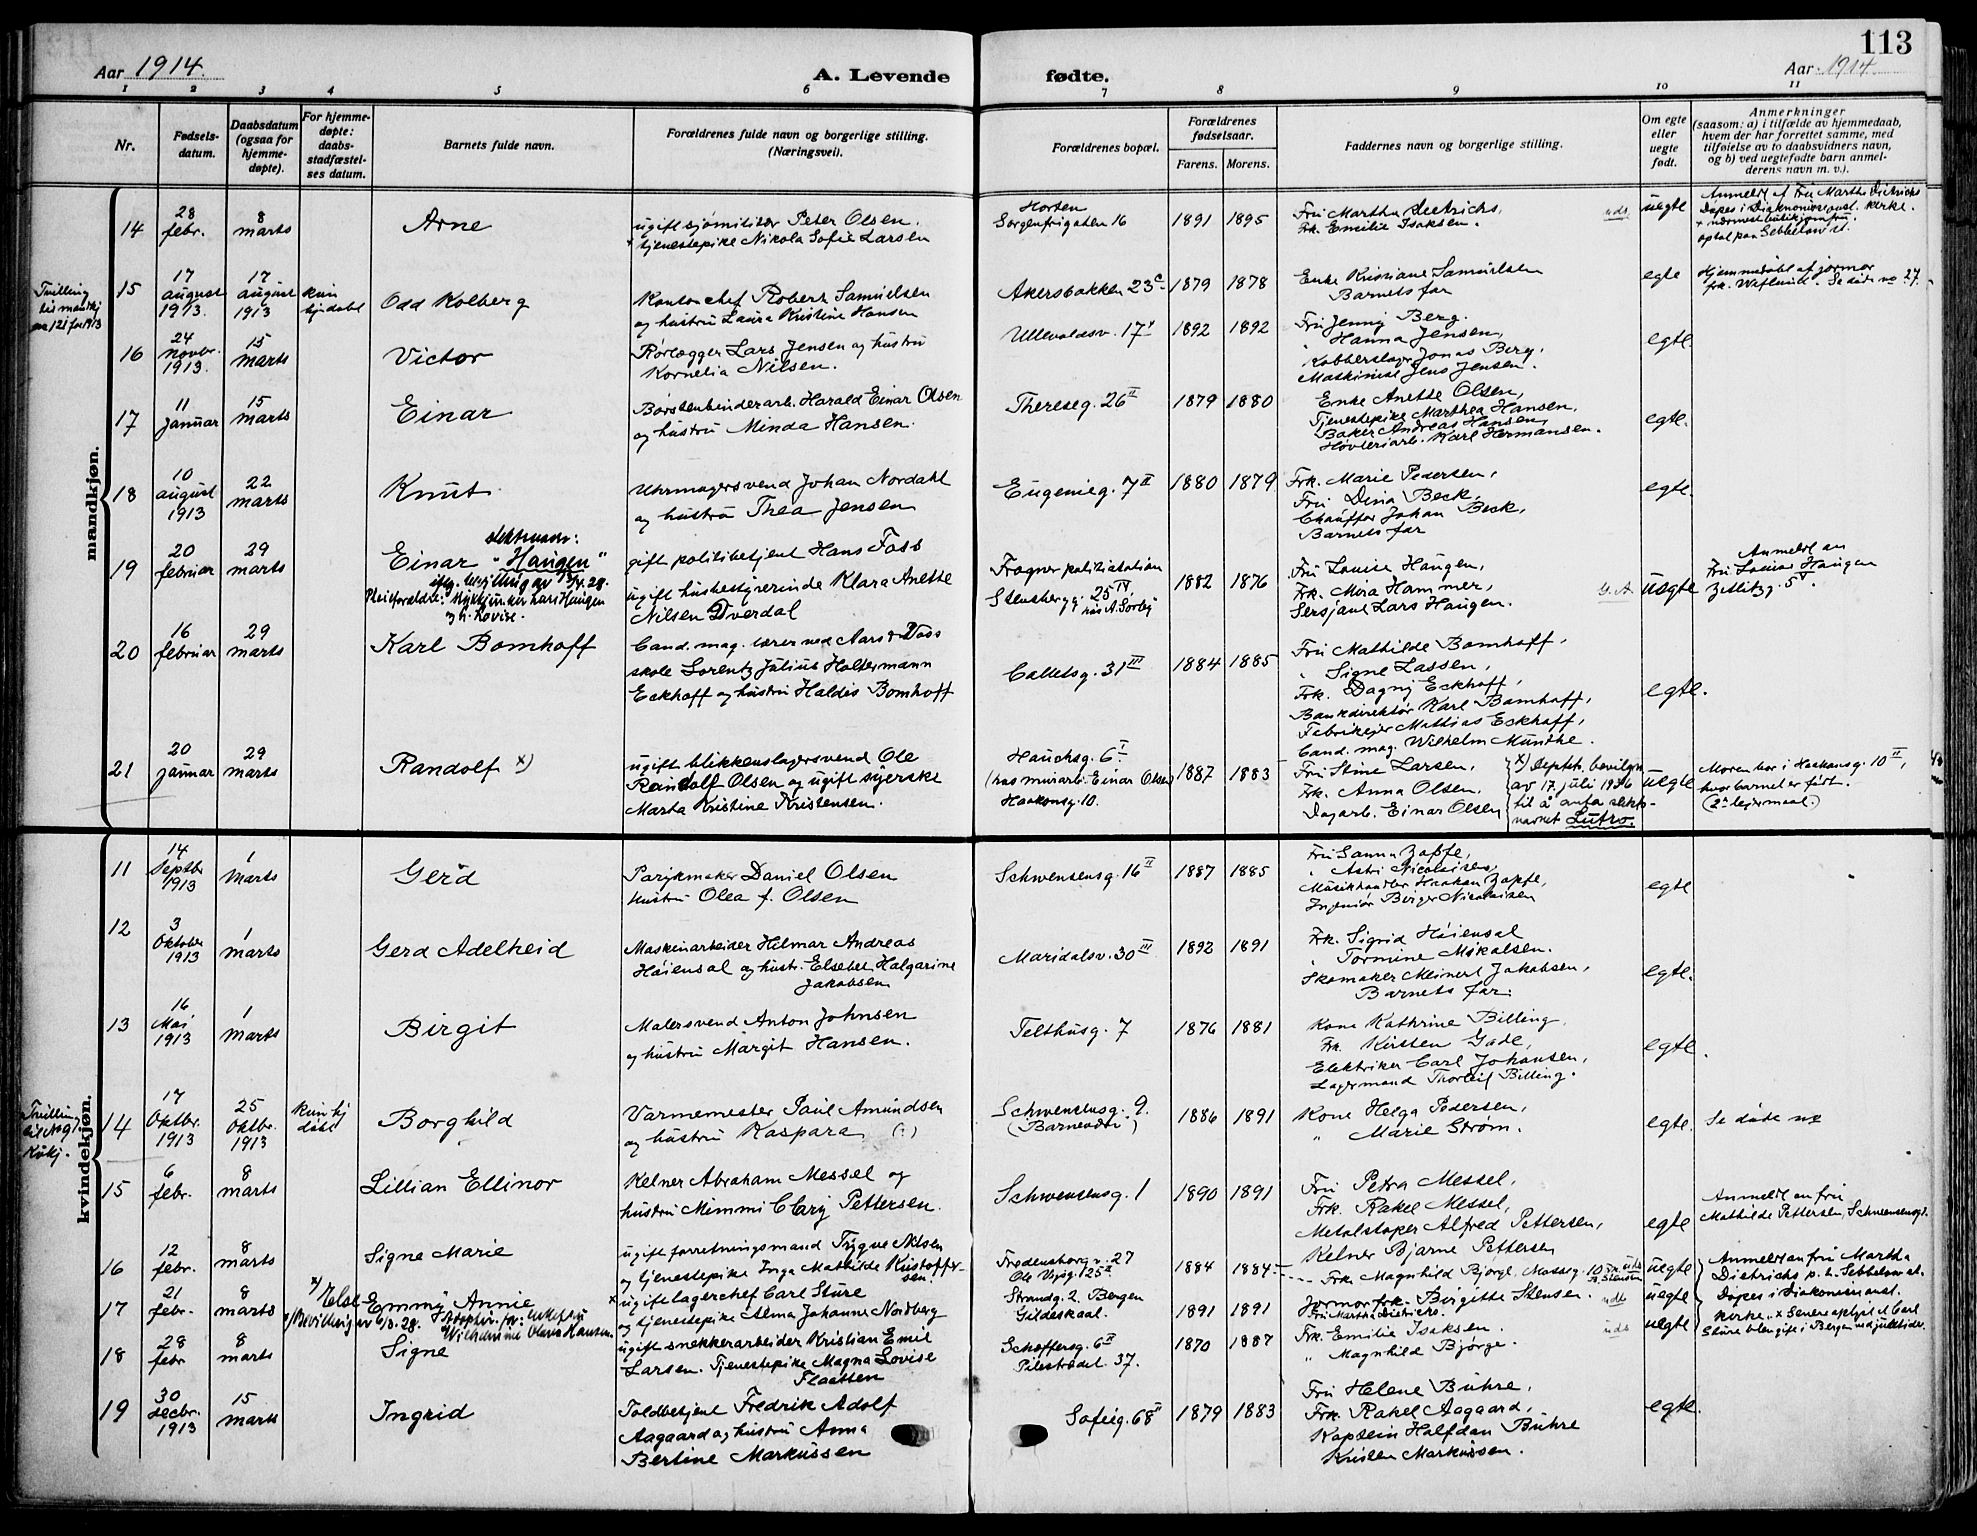 Aar 1914.
A. Levende
fødte.
113
Aar 1914
1 2 3 4 5 6 7 8 9 10 11
Nr.
Fødsels-
datum.
Daabsdatum
(ogsaa for
hjemme-
døpte).
For hjemme-
døpte:
daabs-
stadfæstel-
ses datum.
Barnets fulde navn.
Forældrenes fulde navn og borgerlige stilling.
(Næringsvei).
Forældrenes bopæl.
Forældrenes
fødselsaar.
Farens. Morens.
Faddernes navn og borgerlige stilling.
Om egte
eller
uegte
født.
Anmerkninger
(saasom: a) i tilfælde av hjemmedaab,
hvem der har forrettet samme, med
tilføielse av to daabsvidners navn,
og b) ved uegtefødte barn anmel-
derens navn m. v.).
mandkjøn.
14
28
febr.
8
marts
Arne
ugift sjømilitær Peter Olsen.
tjenestepike Nikola Sofie Larsen
Horten
Sorgenfrigaten 16
1891 1895
Fru Martha Dietrichs,
Frk. Emilie Isaksen.
uds
uegte
Anmeldt af Fru Martha Dietrichs
Døpes i Diakonisseanst. kirke.
Tvilling
til mandkj
no 121 for 1913
15
17
august
1913.
17
august
1913
kun
hjdøbt
Odd Kolberg
Kontorchef Robert Samuelsen
og hustru Laura Kristine Hansen
Akersbakken 23c
1879 1878
Enke Kristiane Samuelsen
Barnets far
egte
Hjemmedøbt af jormor
Se døde no 27.
16
24
novbr.
1913.
15
marts
Victor
Rørlægger Lars Jensen og hustru
Kornelia Nilsen.
Ullevoldsv. 17
1892 1892
Fru Jenny Berg.
" Hanna Jensen,
Kobberslager Jonas Berg,
Maskinist Jens Jensen.
egte
17
11
januar
15
marts
Einar
Børstenbinderarb. Harald Einar Olsen
og hustru Minda Hansen.
Thereseg. 26 II
1879 1880
Enke Anette Olsen,
Tjenestepike Marthea Hansen,
Baker Andreas Hansen,
Høvleriarb. Karl Hermansen.
egte.
18
10
august
1913
22
marts
Knut
Uhrmagersvend Johan Nordahl
og hustru Thea Jensen
Eugenieg. 7 II
1880 1879
Frk. Marie Pedersen,
Fru Dina Beck,
Chauffør Johan Beck,
Barnets far
egte.
19
20
februar
29
marts
slektsnavn:
Einar "Haugen"
iflg. bevilling av 13/4.28.
Pleieforeldre: Lars Haugen
og h. Lovise.
gift politibetjent Hans Foss
ugift husbestyrerinde Klara Anette
Nilsen Dverdal
Frogner politistation
Stensbergg. 25 IV.
hos A. Sørby
1882 1876
Fru Louise Haugen,
Frk. Mira Hammer,
Sersjant Lars Haugen.
uegte
Anmeldt av
Fru Louise Haugen
Zetlitzg. 5 V.
20
16
februar
29
marts
Karl Bomhoff
Cand. mag. lærer ved Aars & Voss
skole Lorentz Julius Holtermann
Eckhoff og hustru Haldis Bomhoff
Colletsg. 31 III
1884 1885
Fru Mathilde Bomhoff,
" Signe Lassen,
Frk. Dagny Eckhoff,
Bankdirektør Karl Bomhoff,
Fabrikejer Mathias Eckhoff,
Cand. mag. Wilhelm Munthe.
egte.
21
20
januar
29
marts
Randolf x)
ugift blikkenslagersvend Ole
Randolf Olsen og ugift syerske
Marta Kristine Kristensen.
Hauchsg. 6 I
(hos murarb. Einar Olsen)
Haakonsg. 10.
1887 1883
Fru Stine Larsen,
Frk. Anna Olsen.
Dagarb. Einar Olsen
x) Deptets. bevilgn
av 17. juli 1926
til å anta slekts-
navnet Lutro.
uegte
Moren bor i Haakonsg. 10 II,
hvor barnet er født.
(2' leiermaal.)
kvindekjøn.
11
14
Septbr
1913
1
Marts
Gerd
Parykmaker Daniel Olsen
hustru Olea f. Olsen
Schwensensg. 16 II
1887 1885
Fru Sanna Zapfe,
" Astri Nicolaisen,
Musikhandler Haakon Zapfe,
Ingeniør Birger Nicolaisen
egte
12
3
Oktober
1913
1
marts
Gerd Adelheid
Maskinarbeider Hilmar Andreas
Høiensal og hustr. Elsebet Halgarine
Jakobsen
Maridalsv. 30 III
1892 1891
Frk. Sigrid Høiensal
" Tormine Mikalsen.
Skomaker Meinert Jakobsen,
Barnets far.
egte.
13
16
Mai
1913
1
Marts
Birgit
Malersvend Anton Johnsen
og hustru Margit Hansen.
Telthusg. 7
1876 1881
Kone Kathrine Billing
Frk. Kirsten Gade,
Elektriker Carl Johansen,
Lagermand Thorleif Billing.
egte.
Tvilling
14
17
Oktbr.
1913
25
Oktbr.
1913
kun hj
døbt
Borghild
Varmemester Paul Amundsen
og hustru Kaspara (:)
Schwensensg. 9.
1886 1891
Kone Helga Pedersen,
" Marie Strøm.
egte.
Se døde no
15
6
febr.
8
marts
Lillian Ellinor
Kelner Abraham Messel og
hustru Mimmi Clary Pettersen.
Schwensensg. 1
1890 1891
Fru Petra Messel,
Frk. Rakel Messel,
Metalstøper Alfred Pettersen,
Kelner Bjarne Pettersen
egte
Anmeldt av fru
Mathilde Pettersen, Schwensensg 1.
16
12
febr.
8
marts
Signe Marie
ugift forretningsmand Trygve Nilsen
og tjenestepike Inga Mathilde Kristoffer-
sen.
Fredensborgv. 27
1884 1884
Frk. Magnhild Bjørge,
uegte
Anmeldt av fru Martha
Dietrichs
Døpes i Diakonisseanst.
kirke.
17
21
febr.
8
marts
x) Else Emmy Annie
x) Bevilling av 6/3.28.
ugift lagerchef Carl Sture
og tjenestepike Alma Johanne Nordberg
Strandg. 2. Bergen
Gildeskaal.
1891 1891
Jormor frk. Birgitte Stensen.
Fru Martha Dietrichs.
uds
uegte
18
28
febr
8
marts
Signe
ugift snekkerarbeider Kristian Emil
Larsen. Tjenestepike Magna Lovise
Flaatten
Schøffersg. 6 II
Pilestrædet. 37.
1870 1887
Frk. Emilie Isaksen.
" Magnhild Bjørge.
uds
uegte
19
30
decbr.
1913
15
marts
Ingrid
Toldbetjent Fredrik Adolf
Aagaard og hustru Anna
Bertine Markussen
Sofieg. 68 I
1879 1883
Fru Helene Buhre,
Frk. Rakel Aagaard,
Kaptein Halfdan Buhre
Kristen Markussen.
egte.